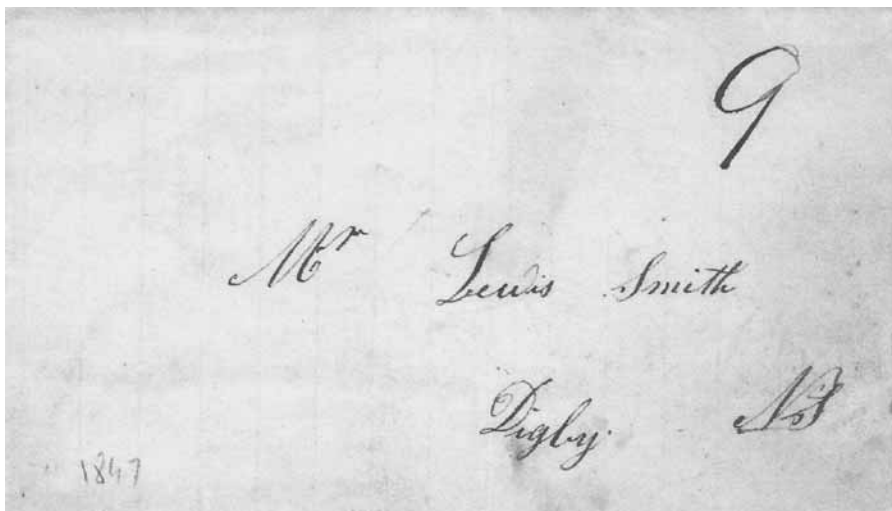 9
Mr Lewis Smith
Digby. NS
1847